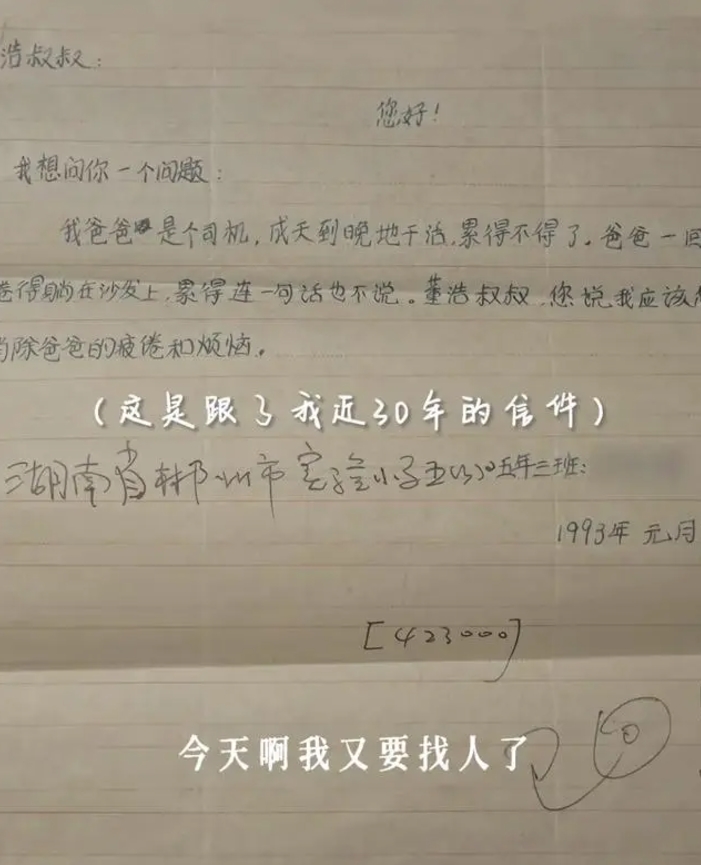 浩叔叔:
您好!
我想问你一个问题:
我爸爸是个司机,成天到晚地干活,累得不得了。爸爸一回
倦得躺在沙发上,累得连一句话也不说。董浩叔叔,您说我应该
消除爸爸的疲倦和烦恼。
(这是跟了我近30年的信件)
湖南省郴州市实验小学五(3)五年三班:
1993年 元月
[423000]
今天啊我又要找人了